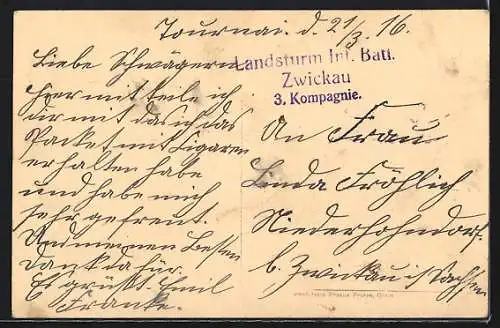 Tournai. d. 21/3. 16.
Landsturm Inf. Batl.
Zwickau
3. Kompagnie.
Liebe Schwägerin
hier mit teile ich
dir mit das ich das
Packet mit Zigaren
erhalten habe
und habe mich
sehr gefreut.
Und meinen Besten
Dank da für.
Es grüßt Emil
Franke.
An Frau
Linda Fröhlich
Niederhohndorf
b. Zwickau i/ Sachsen